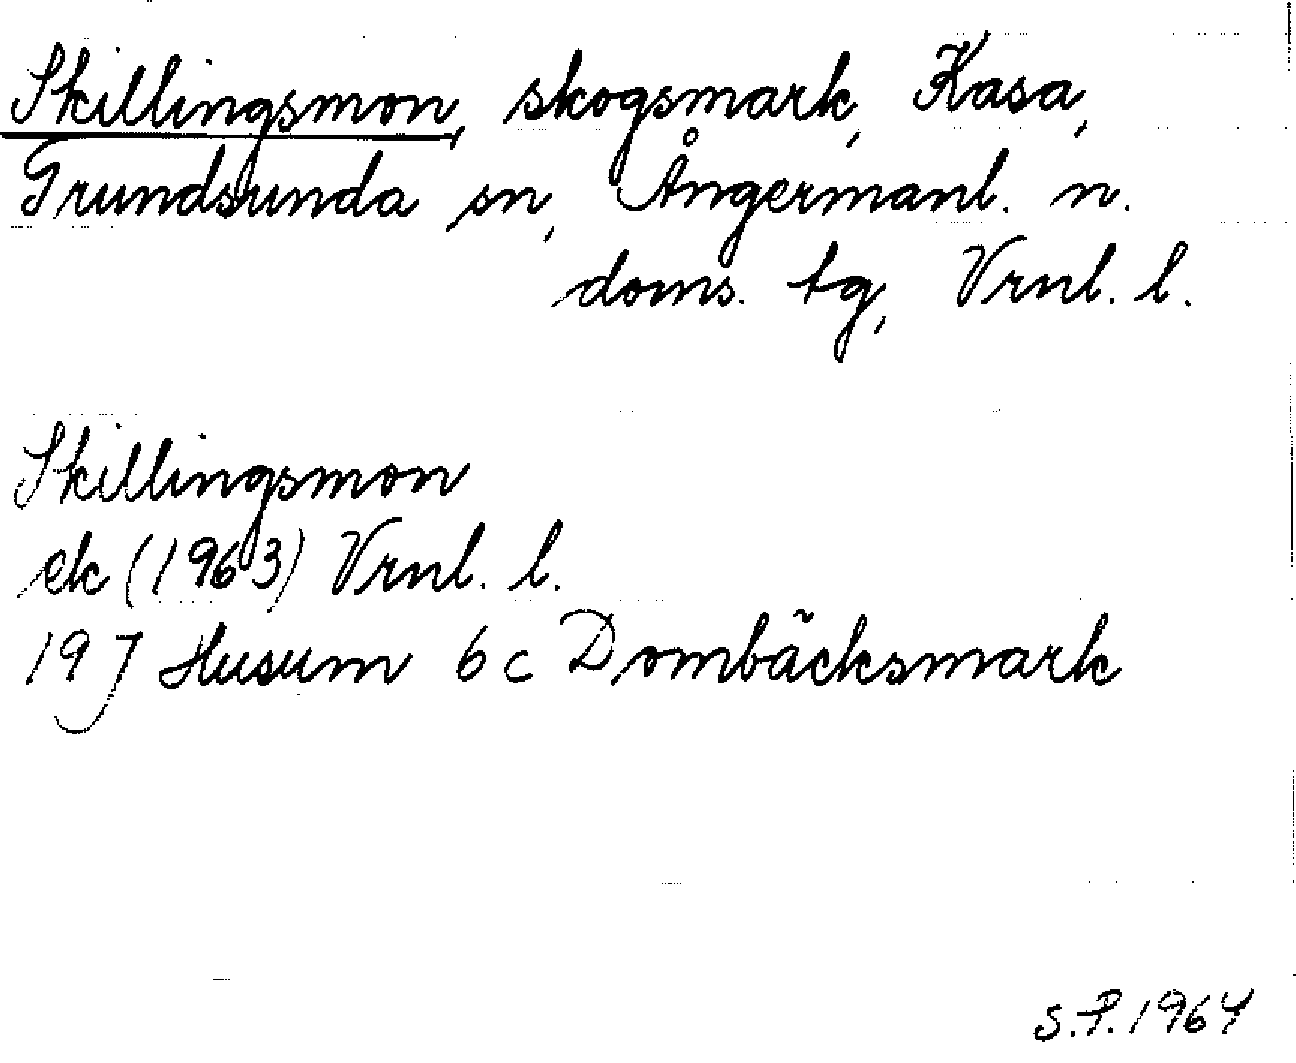 Skillingsmon, skogsmark, Kasa,
Grundsunda sn, Ångermanl. n.
doms. tg, Vrnl. l.
Skillingsmon
ek (1963) Vrnl. l.
19 J Husum 6 c Dombäcksmark
S.P. 1964